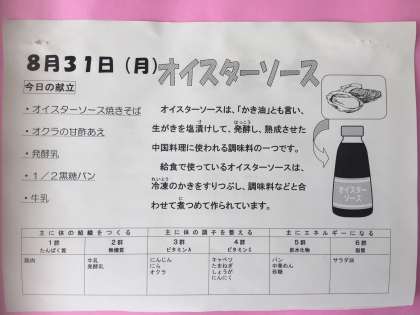 8月31日（月）オイスターソース
今日の献立
・オイスターソース焼きそば
・オクラの甘酢あえ
・発酵乳
・1／2黒糖パン
・牛乳
オイスターソースは、「かき油」とも言い、
生がきを塩漬けして、発酵し、熟成させた
中国料理に使われる調味料の一つです。
給食で使っているオイスターソースは、
冷凍のかきをすりつぶし、調味料などと合
わせて煮つめて作られています。
オイスター
ソース
主に体の組織をつくる 主に体の調子を整える 主にエネルギーになる
1群 2群 3群 4群 5群 6群
たんぱく質 無機質 ビタミンA ビタミンC 炭水化物 脂質
豚肉 牛乳 にんじん キャベツ パン サラダ油
発酵乳 にら たまねぎ 中華めん
オクラ しょうが 砂糖
にんにく